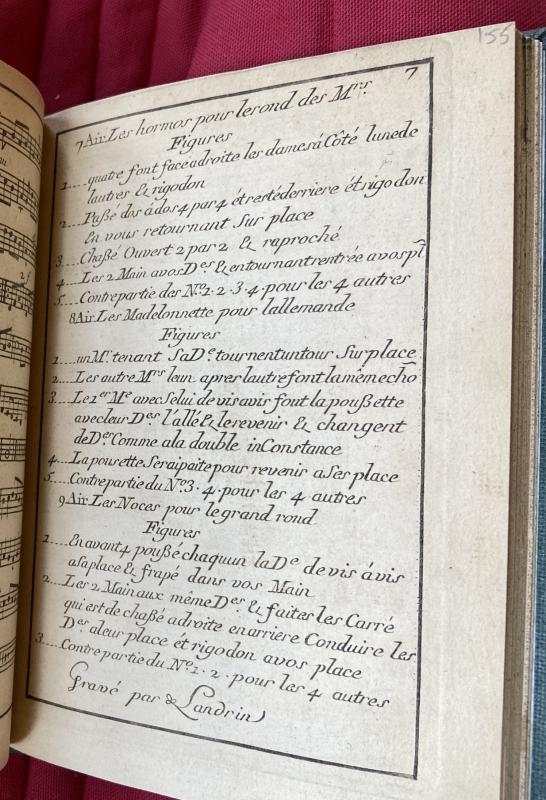 155
7
7 Air. Les hormos pour le rond des Mrs
Figures
1... quatre font face adroite les dames á Côté lunede
lautres & rigodon
2... Paßé dos á dos 4 par 4 ét resté derriere ét rigodon
En vous retournant Sur place
3... Chaßé Ouvert 2 par 2 & raproché
4... Les 2 Main avos Des & entournant rentrée avos pl
5... Contre partie des No 1. 2. 3. 4. pour les 4 autres
8 Air Les Madelonnette pour lallemande
Figures
1... un Mr tenant Sa De tournent un tour Sur place
2... Les autre Mrs leun apres lautre font la même cho
3... Le 1er Me avec Selui de vis avis font la poußette
avec leur Des l'allé & le revenir & changent
de De Comme ala double inConstance
4... La pousette Seraipaite pour revenir a Ses place
5... Contre partie du No 3. 4. pour les 4 autres
9 Air. Les Noces pour le grand rond
Figures
1... En avant 4 poußé chaquun la De de vis ávis
asa place & frapé dans vos Main
2... Les 2 Main aux même Des & faites les Carré
qui est de chaßé adroite en arriere Conduire les
Des aleur place ét rigodon avos place
3... Contre partie du No 1. 2. pour les 4 autres
Gravé par de Landrin